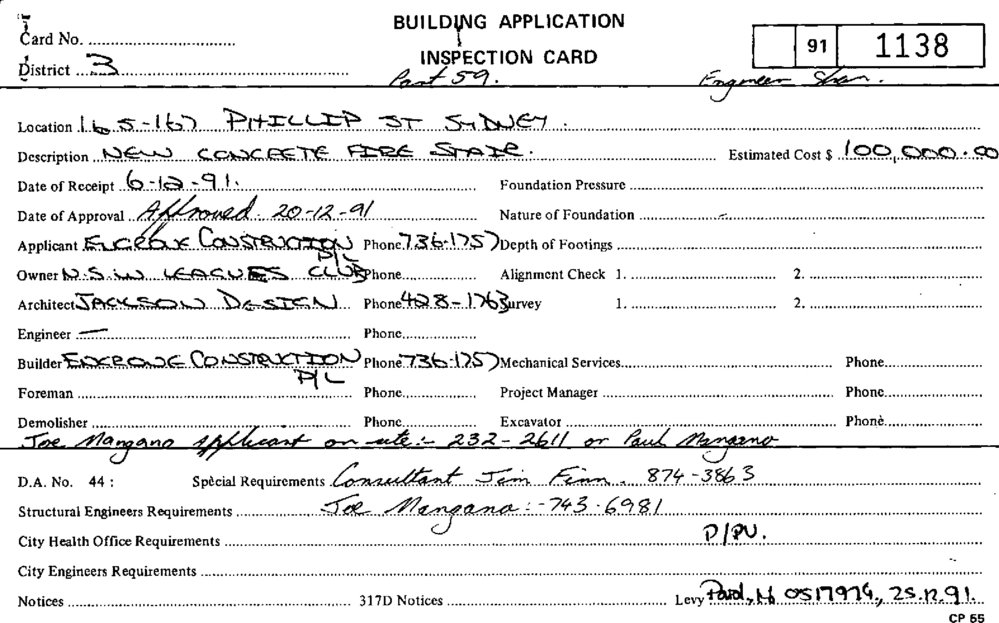 BUILDING APPLICATION
Card No.
INSPECTION CARD
91 1138
District 3
Part 59.
Engineer
Location 165-167 PHILLIP ST SYDNEY.
Description NEW CONCRETE FIRE STAIR. Estimated Cost $ 100,000.00
Date of Receipt 6-12-91. Foundation Pressure
Date of Approval Approved 20-12-91 Nature of Foundation
Applicant CONSTRUCTION P/L Phone 736-1757 Depth of Footings
Owner N.S.W LEAGUES CLUB Phone Alignment Check 1. 2.
Architect JACKSON DESIGN Phone 428-1763 Survey 1. 2.
Engineer — Phone
Builder CONSTRUCTION P/L Phone 736-1757 Mechanical Services Phone
Foreman Phone Project Manager Phone
Demolisher Phone Excavator Phone
Joe Mangano applicant on site :- 232-2611 or Paul Mangano
D.A. No. 44 : Special Requirements Consultant Jim Finn. 874-3863
Structural Engineers Requirements Joe Mangano :- 743-6981
City Health Office Requirements D/PV.
City Engineers Requirements
Notices 317D Notices Levy Paid, 25.12.91.
CP 55